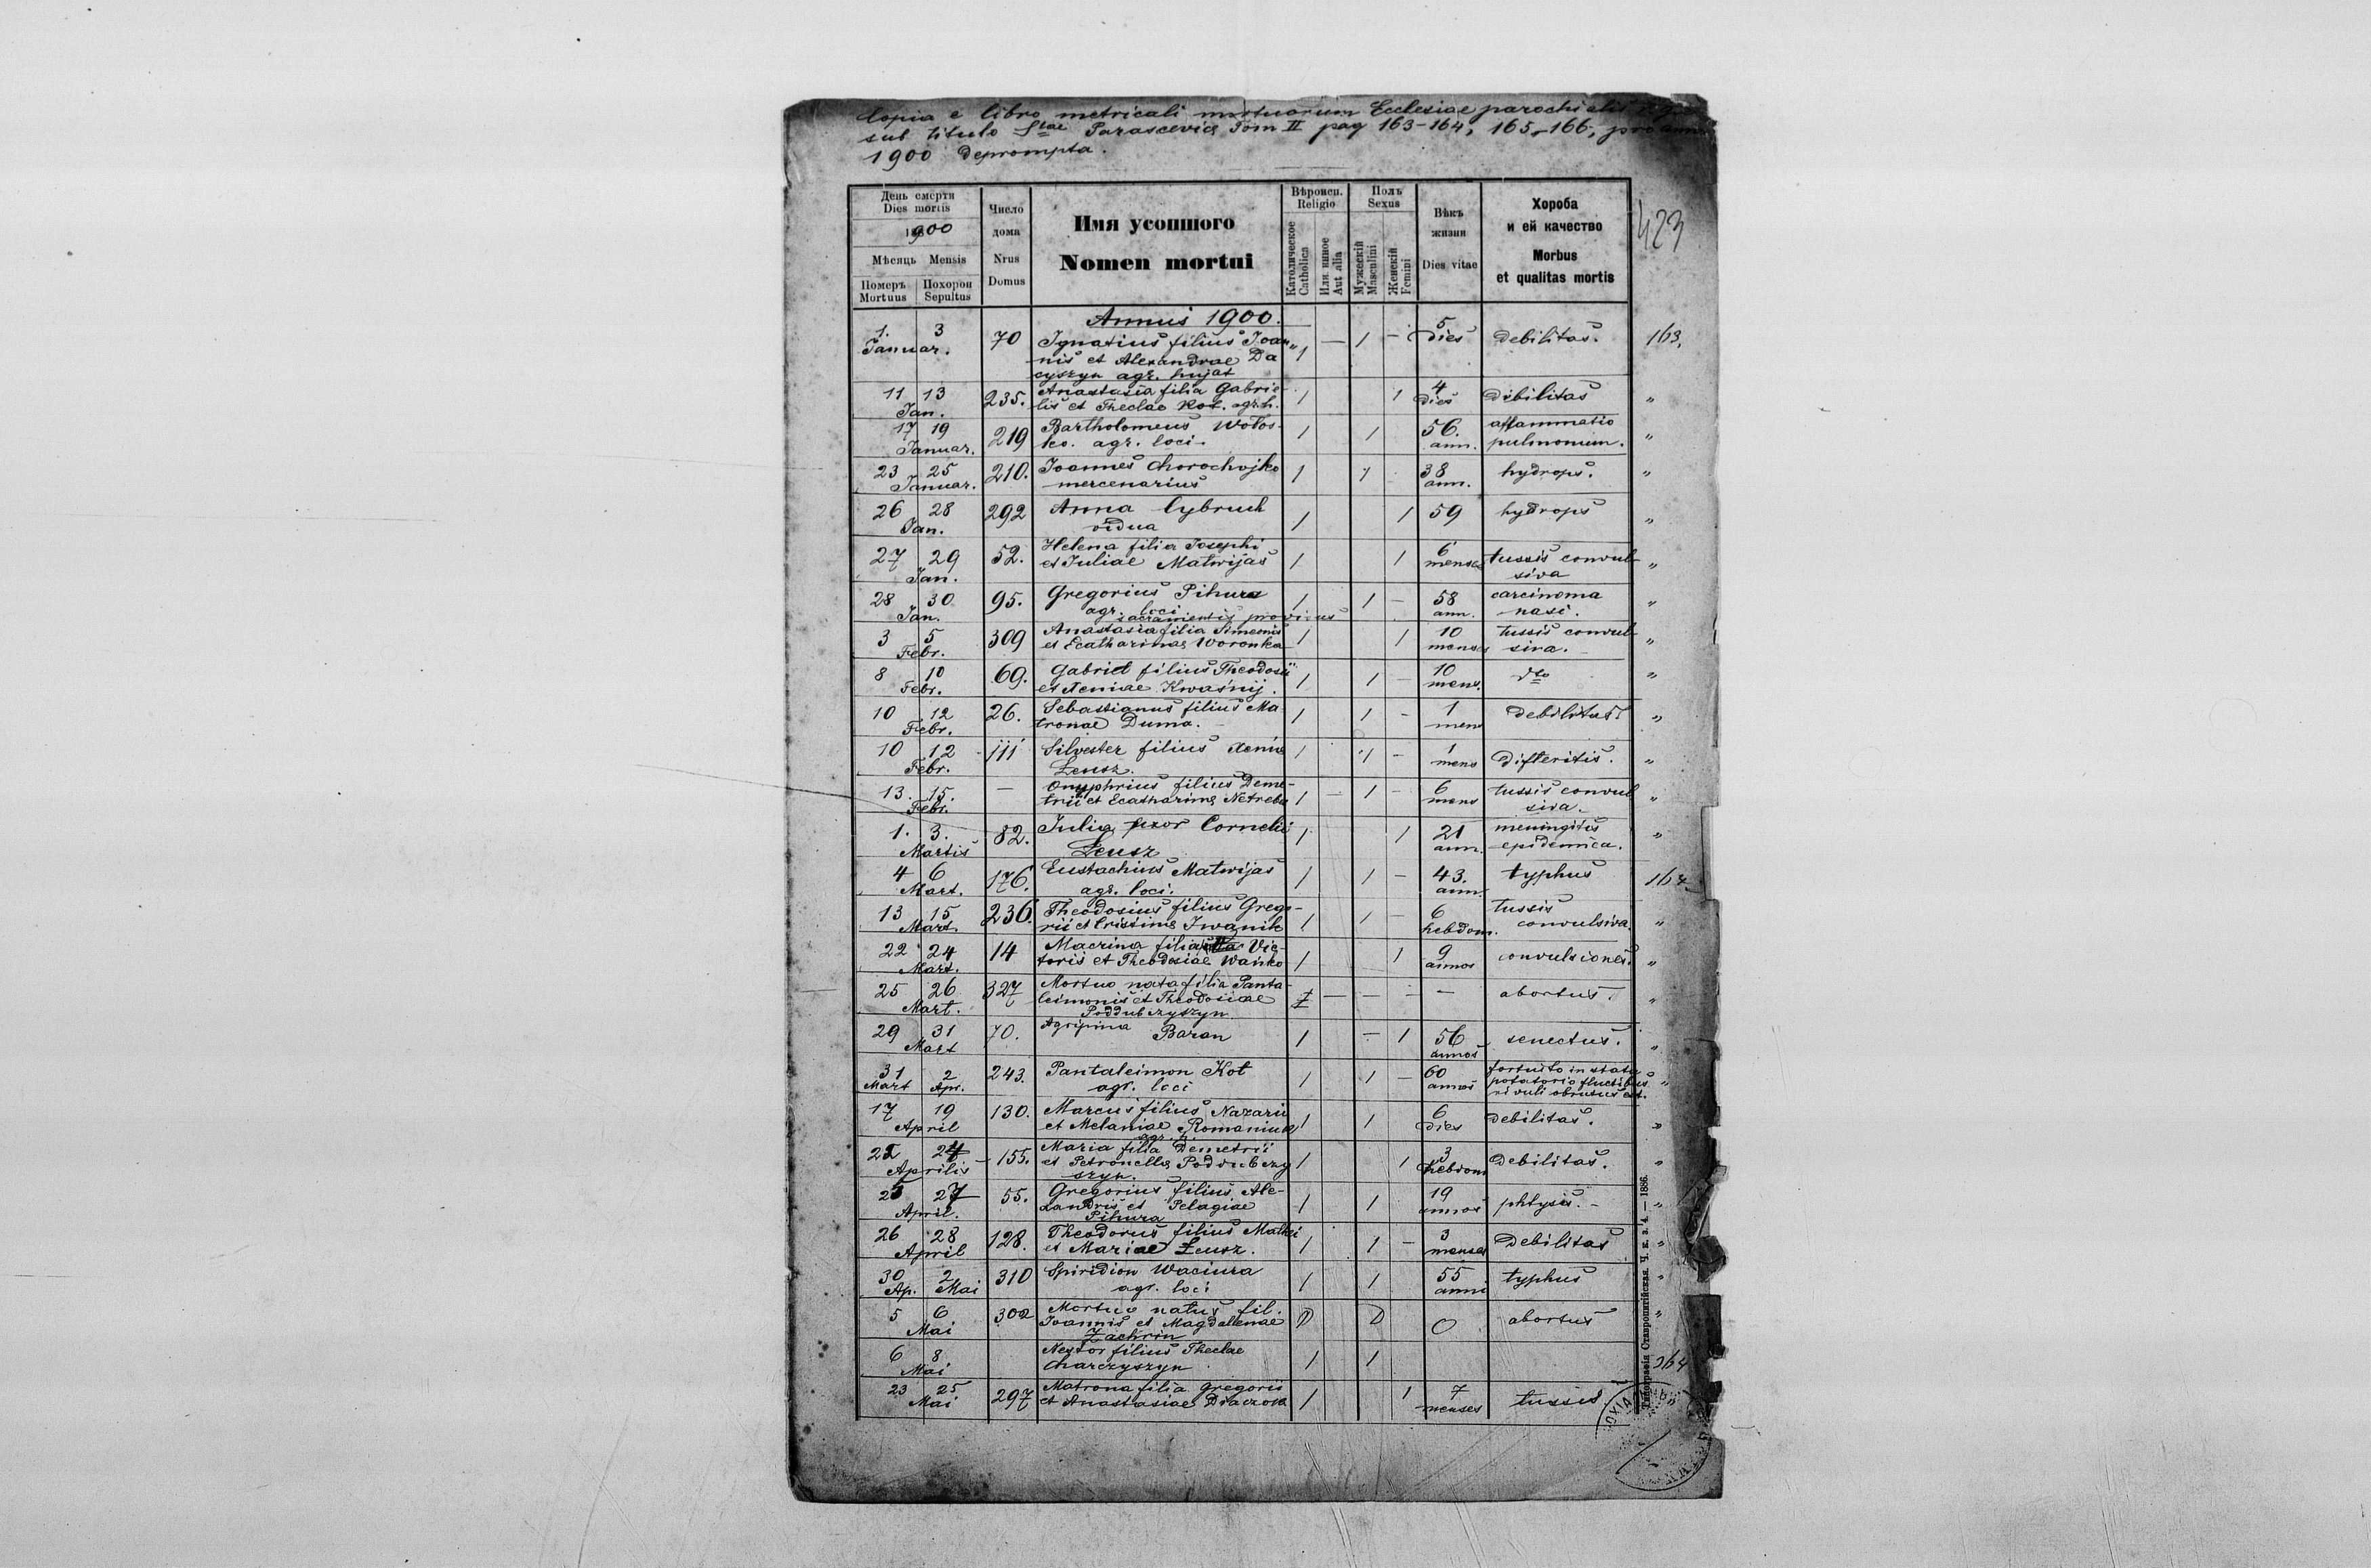 Copia e libro metricali mortuorum Ecclesiae parochialis
sub titulo Stae Parascevia Tom II pag 163-164, 165-166, pro ann
1900 deprompta.
423
День смерти
Dies mortis
1900
Мѣсяць Mensis
Померъ Похорон
Mortuus Sepultus
Число
дома
Nrus
Domus
Имя усопшого
Nomen mortui
Вѣроисп.
Religio
Католическое
Catholica
Или инное
Aut alia
Полъ
Sexus
Мужескій
Masculini
Женскій
Femini
Вѣкъ
жизни
Dies vitae
Хороба
и ей качество
Morbus
et qualitas mortis
Annus 1900.
1. 3 Januar. 70 Ignatius filius Joan- 1 — 1 — 5 dies debilitas. 163,
nis et Alexandrae Da
cyszyn agr. hujat
11 13 Jan. 235. Anastasia filia Gabrie- 1 1 4 dies debilitas "
lis et Theclae Kot. agr. h.
17 19 Januar. 219 Bartholomeus Wołos- 1 1 56. ann. afflammatio "
ko. agr. loci. pulmonum.
23 25 Januar. 210. Joannes Chorochojko 1 1 38 ann. hydrops. "
mercenarius
26 28 Jan. 292 Anna Cybruch 1 1 59 hydrops "
vidua
27 29 Jan. 52. Helena filia Josephi 1 1 6 menses tussis convul- "
et Juliae Matwijas siva
28 30 Jan. 95. Gregorius Pihura 1 1 — 58 ann. carcinoma "
agr. loci nasi.
sacramentis provisus
3 5 Febr. 309 Anastasia filia Simeonis 1 1 10 menses tussis convul- "
et Ecatharinae Woronka siva.
8 10 Febr. 69. Gabriel filius Theodosii 1 1 — 10 mens. dto "
et Xeniae Kwaśnij.
10 12 Febr. 26. Sebastianus filius Ma 1 1 — 1 mens debilitas "
tronae Duma.
10 12 Febr. 111 Silvester filius Xeniae 1 1 — 1 mens difteritis. "
Łeusz.
13. 15. Febr. — Onyphrius filius Deme- 1 — 1 — 6 mens tussis convul "
trii et Ecatharinae Netreba siva.
1. 3. Martis 82. Julia uxor Cornelii 1 1 21 ann. meningitis "
Łeusz epidemica.
4 6 Mart. 176. Eustachius Matwijas 1 1 — 43. ann. typhus 164
agr. loci.
13 15 Mart. 236. Theodosius filius Grego- 1 1 — 6 hebdom. tussis "
rii et Cristinae Iwanik convulsiva.
22 24 Mart. 14 Macrina filia Vic- 1 1 9 annos convulsiones. "
toris et Theodosiae Wańko
25 26 Mart. 327 Mortuo nata filia Panta- — — — — abortus. "
leimonis et Theodosiae
Poddubczyszyn
29 31 Mart 70. Agripina Baran 1 — 1 56 annos senectus. "
31 Mart 2 Apr. 243. Pantaleimon Kot 1 1 — 60 annos fortuito in statu "
agr. loci potatorio fluctibus
rivuli obrutus est.
17 19 April 130. Marcus filius Nazarii 1 1 6 dies debilitas. "
et Melaniae Romaniuk
agr. h.
22 24 Aprilis 155. Maria filia Demetrii 1 1 3 hebdom debilitas. "
et Petronellae Poddubczy
szyn.
25 27 April. 55. Gregorius filius Ale- 1 1 19 annos phtysis. "
xandris et Pelagiae
Pihura
26 28 April 128. Theodorus filius Mathei 1 1 — 3 menses Debilitas "
et Mariae Łeusz.
30 Ap. 2 Mai 310 Spiridion Waciura 1 1 55 anni typhus "
agr. loci
5 6 Mai 302 Mortuo natus fil. 0 abortus "
Joannis et Magdalenae
Zachrin
6 8 Mai Nestor filius Theclae 1 1 264
Charczyszyn
23 25 Mai 297 Matrona filia Gregoris 1 1 7 menses tussis "
et Anastasiae Diaczok
Типографія Ставропигійская. Ч. к. з. 4. — 1886.